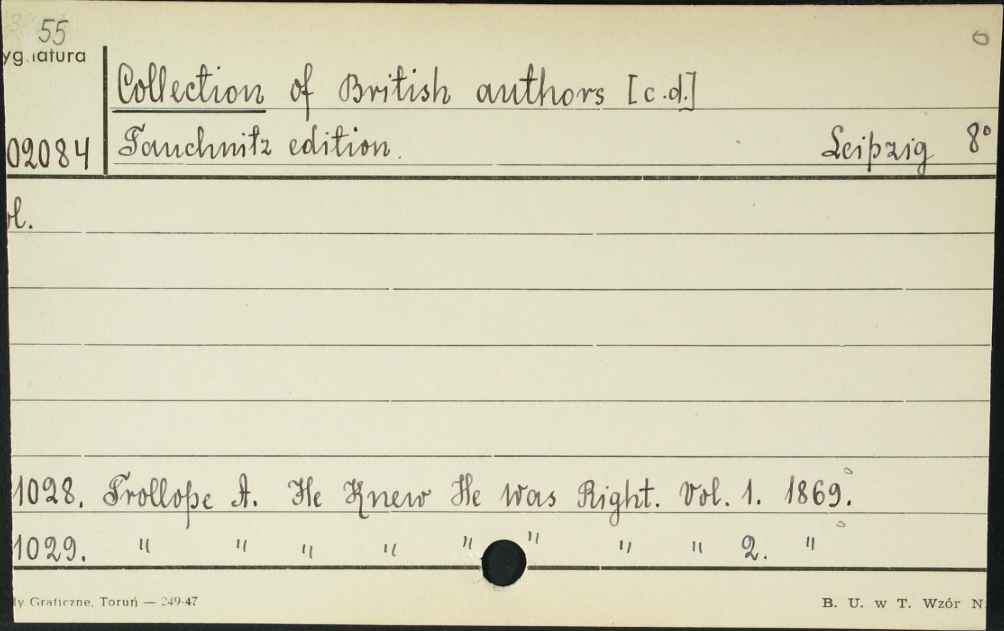 55
Collection of British authors [c.d.]
02084 Tauchnitz edition. Leipzig 8°
1028. Trollope A. He Knew He Was Right. Vol. 1. 1869.
1029. " " " " " " " " 2. "
Graficzne, Toruń — 249-47
B. U. w T. Wzór N